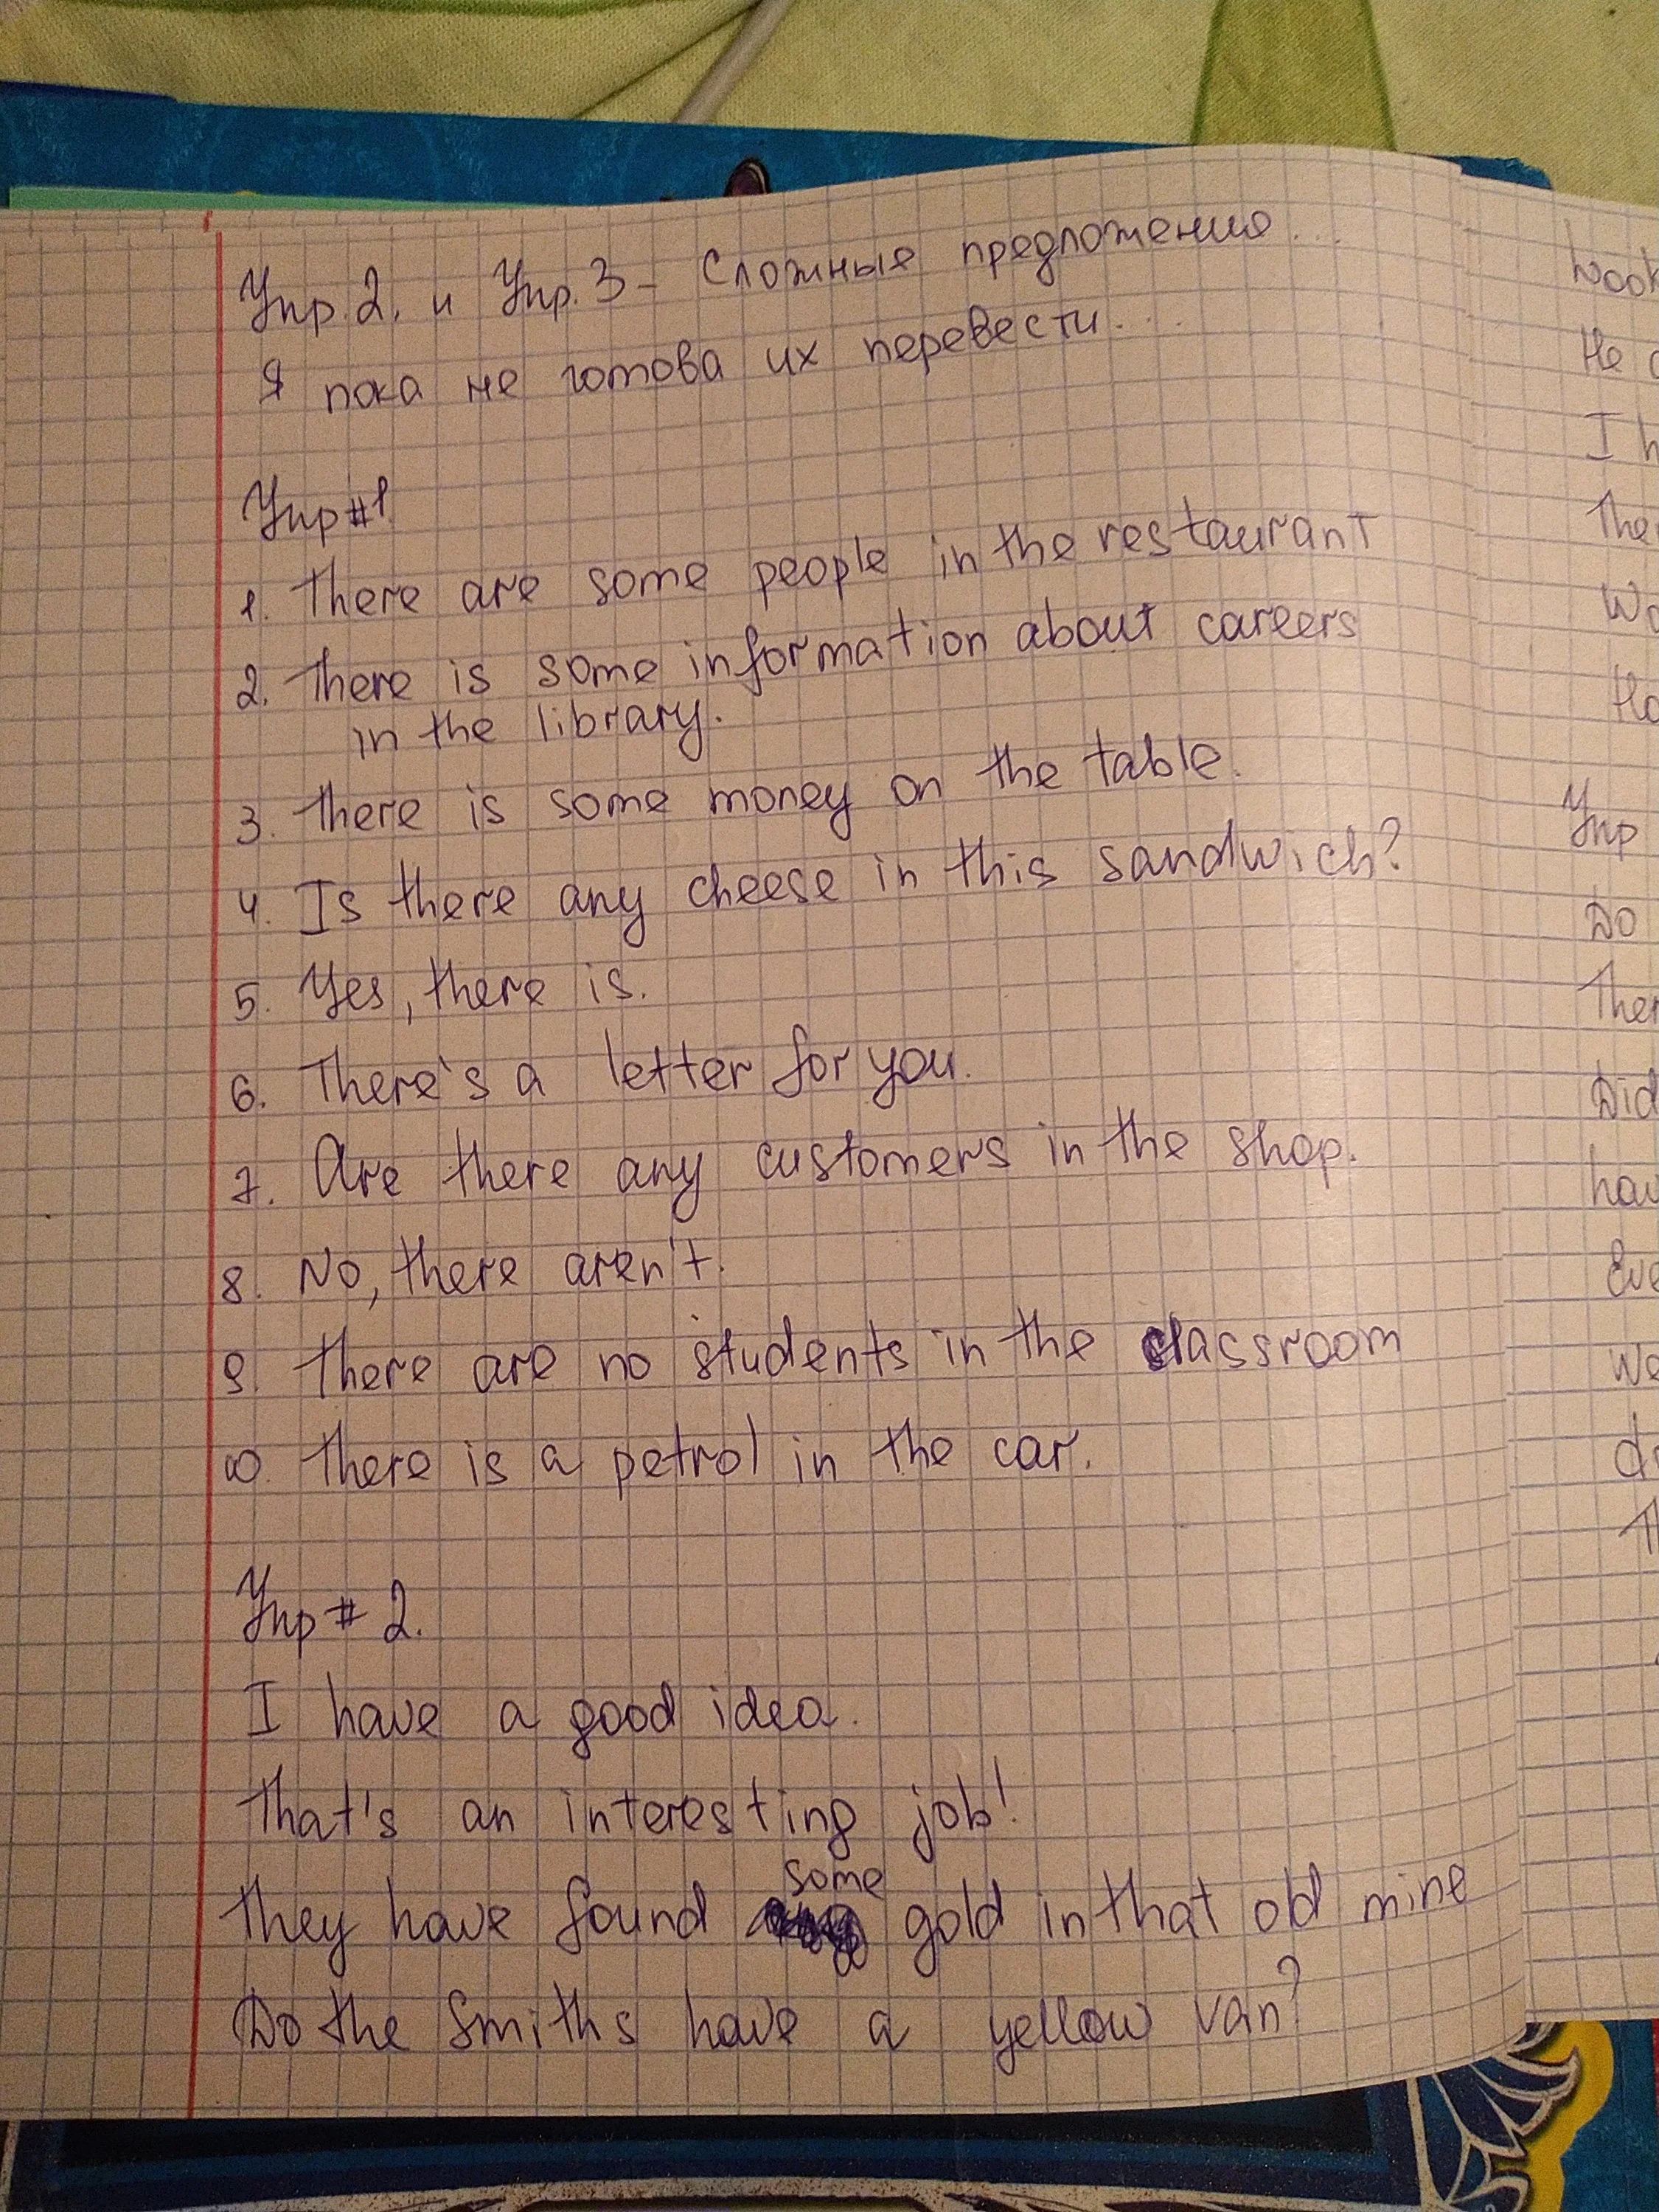 Упр. 2. и Упр. 3 - Сложные предложения...
Я пока не готова их перевести...
Упр #1
1. There are some people in the restaurant
2. There is some information about careers
in the library.
3. There is some money on the table.
4. Is there any cheese in this sandwich?
5. Yes, there is.
6. There's a letter for you.
7. Are there any customers in the shop.
8. No, there aren't.
9. There are no students in the classroom
10. There is a petrol in the car.
Упр # 2.
I have a good idea.
That's an interesting job!
some
They have found gold in that old mine
Do the Smiths have a yellow van?
He
I
Упр
Do
Did